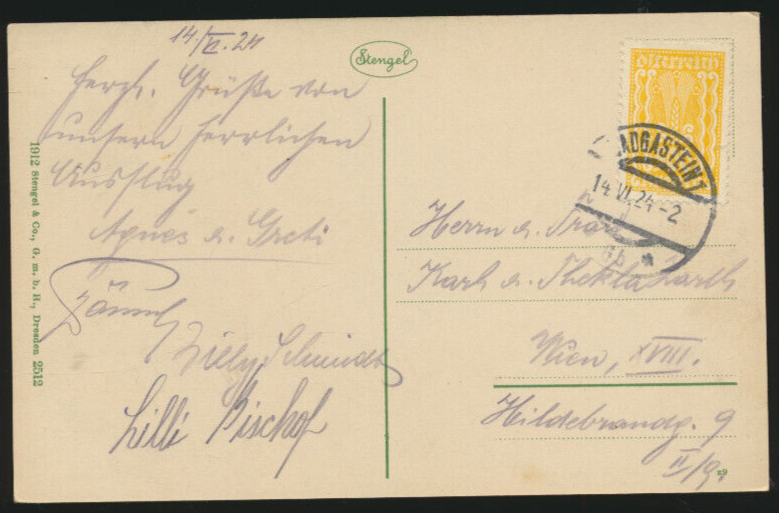 14./VI. 24
Herzl. Grüße von
unsern herrlichen
Ausflug
Agnes u. Greti
Willy Schmidt
Lilli Bischof
Stengel
1912 Stengel & Co., G. m. b. H., Dresden 2512
Österreich
BADGASTEIN 1
14.VI.24-2
Herrn u. Frau
Karl u. Thekla
Wien, XVIII.
Hildebrandg. 9
II/9.
29